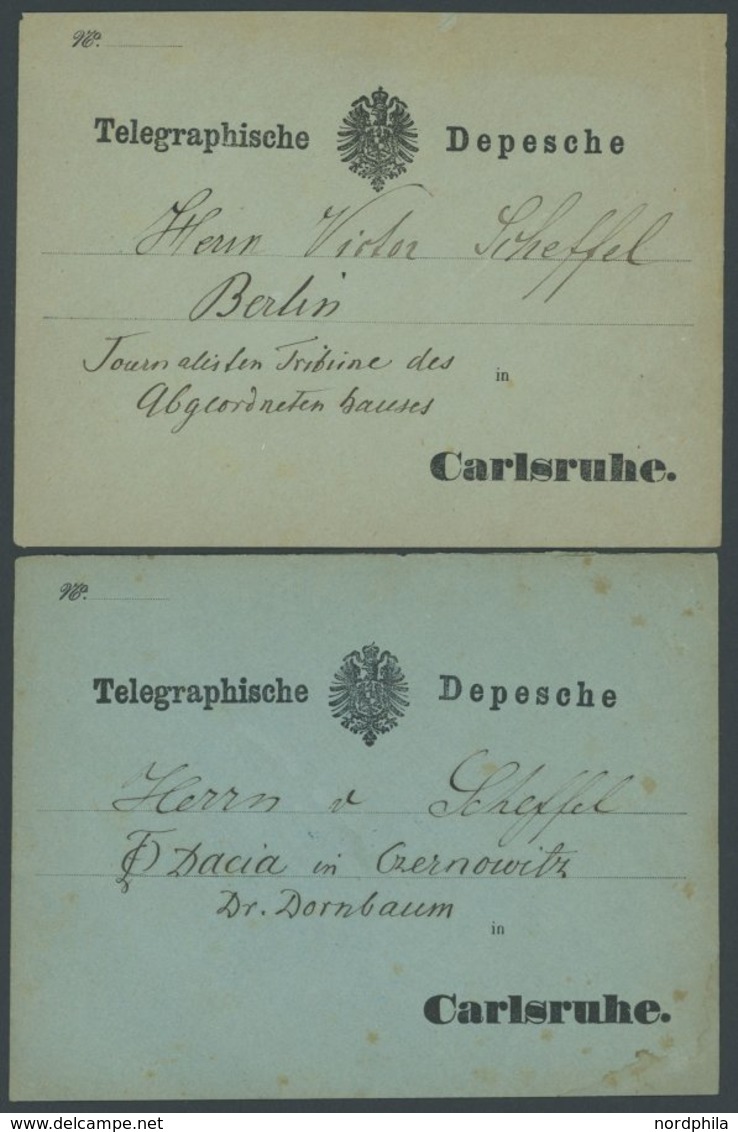 No.
Telegraphische Depesche
Herrn Victor Scheffel
Berlin
Journalisten Tribüne des
in
Abgeordneten hauses
Carlsruhe.
No.
Telegraphische Depesche
Herrn v Scheffel
Dacia in Czernowitz
Dr. Dornbaum
in
Carlsruhe.
nordphila